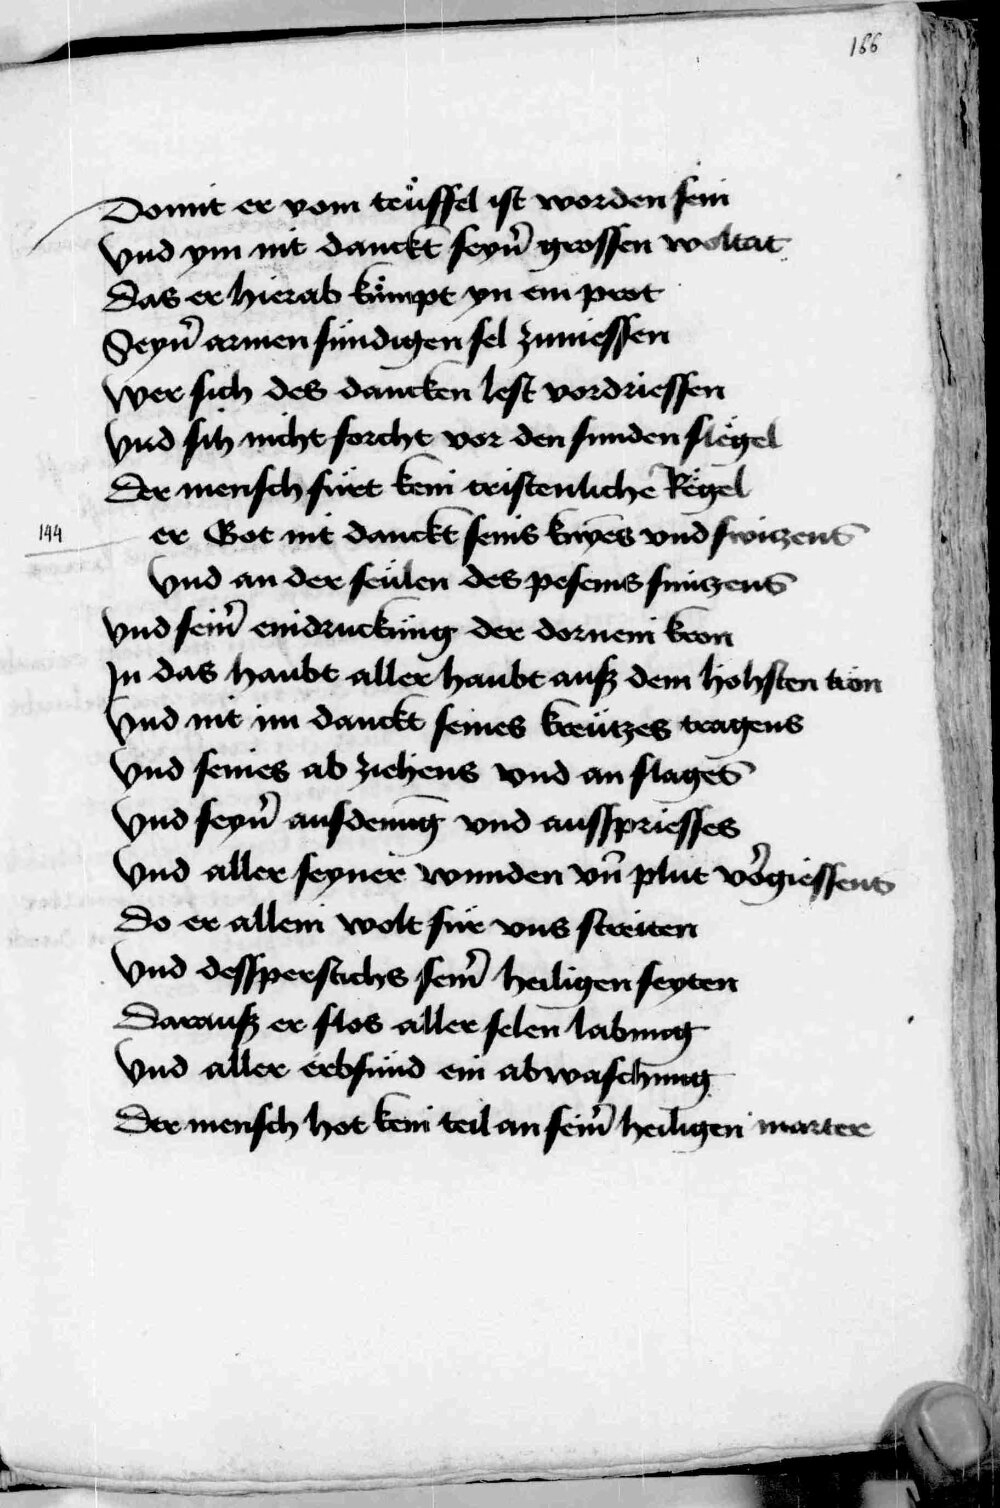 166
Domit er vom teüffel ist worden sein
Vnd ym nit danckt seyn̄ grossen woltat
Das er hierab kumpt yn ein prot
Seyn̄ armen sündigen sel zuniessen
Wer sich des dancken lest vordriessen
Vnd sih nicht forcht vor den sunden slegel
Der mensch fürt kein cristenliche Regel
144
er Got nit danckt seins knyēs vnd switzens
Vnd an der seülen des pesems smitzens
Vnd sein̄ eindruckung der dornein kron
In das haubt aller haubt auß dem hohsten tron
Vnd nit im danckt seines kreützes tragens
Vnd seines ab ziehens vnd an slagēs
Vnd seyn̄ aufdenūg vnd ausspriesses
Vnd aller seyner wunden vn̄ plut vōgiessens
Do er allein wolt für vns streiten
Vnd dessperstichs sein̄ heiligen seyten
Darauß er flos aller selen labung
Vnd aller erbsünd ein abwaschung
Der mensch hot kein teil an sein̄ heiligen marter